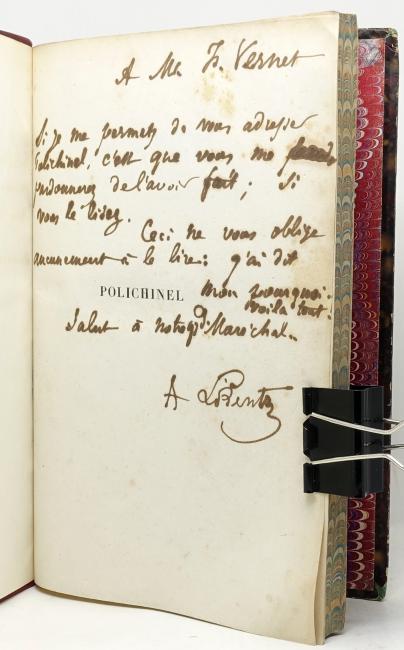 A Mr H. Vernet
Si je me permets de vous adresser
Polichinel, c'est que vous me
pardonnerez de l'avoir fait ; Si
vous le lisez.
Ceci ne vous oblige
aucunement à le lire : j'ai dit
POLICHINEL
mon pourquoi.
voilà tout.
Salut à notre gd Maréchal.
A Lorentz